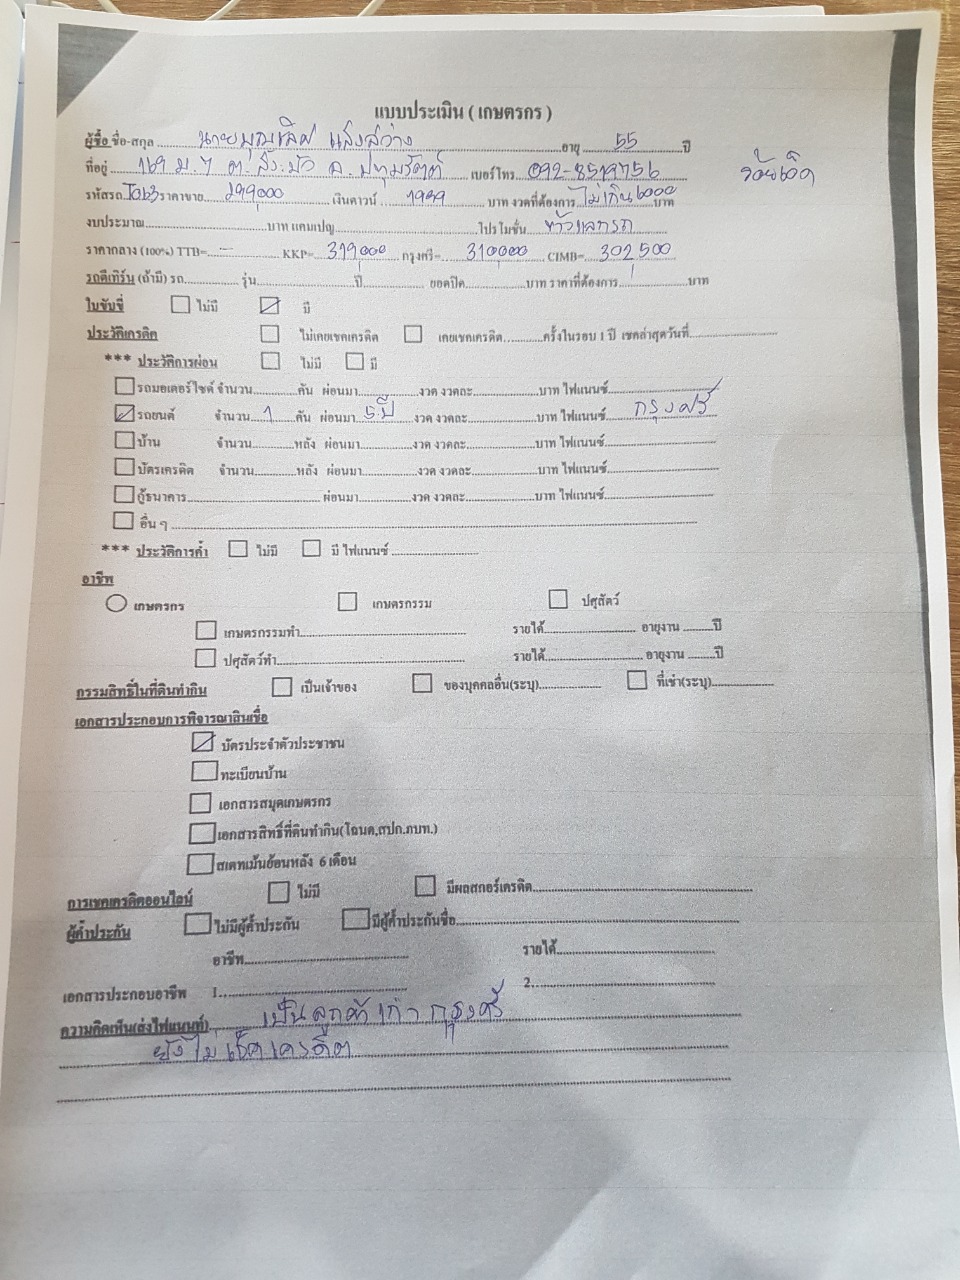 แบบประเมิน ( เกษตรกร )
ผู้ซื้อ ชื่อ-สกุล นายบุญเลิศ แสงสว่าง อายุ 55 ปี
ที่อยู่ 169 ม.7 ต. สระบัว อ. ปทุมรัตต์ เบอร์โทร 092-8519756
รหัสรถ ราคาขาย 299,000 เงินดาวน์ 1999 บาท งวดที่ต้องการ ไม่เกิน 6000 บาท
งบประมาณ บาท แคมเปญ โปรโมชั่น
ราคากลาง (100%) TTB= - KKP= 319,000 กรุงศรี= 310,000 CIMB= 302,500
รถตีเทิร์น (ถ้ามี) รถ รุ่น ปี ยอดปิด บาท ราคาที่ต้องการ บาท
ใบขับขี่ ไม่มี มี
ประวัติเครดิต ไม่เคยเชคเครดิต เคยเชคเครดิต ครั้งในรอบ 1 ปี เชคล่าสุดวันที่
*** ประวัติการผ่อน ไม่มี มี
รถมอเตอร์ไซค์ จำนวน คัน ผ่อนมา งวด งวดละ บาท ไฟแนนซ์
รถยนต์ จำนวน 1 คัน ผ่อนมา 5 ปี งวด งวดละ บาท ไฟแนนซ์ กรุงศรี
บ้าน จำนวน หลัง ผ่อนมา งวด งวดละ บาท ไฟแนนซ์
บัตรเครดิต จำนวน หลัง ผ่อนมา งวด งวดละ บาท ไฟแนนซ์
กู้ธนาคาร ผ่อนมา งวด งวดละ บาท ไฟแนนซ์
อื่น ๆ
*** ประวัติการค้ำ ไม่มี มี ไฟแนนซ์
อาชีพ
เกษตรกร เกษตรกรรม ปศุสัตว์
เกษตรกรรมทำ รายได้ อายุงาน ปี
ปศุสัตว์ทำ รายได้ อายุงาน ปี
กรรมสิทธิ์ในที่ดินทำกิน เป็นเจ้าของ ของบุคคลอื่น(ระบุ) ที่เช่า(ระบุ)
เอกสารประกอบการพิจารณาสินเชื่อ
บัตรประจำตัวประชาชน
ทะเบียนบ้าน
เอกสารสมุดเกษตรกร
เอกสารสิทธิ์ที่ดินทำกิน(โฉนด,สปก.ภบท.)
สเตทเม้นย้อนหลัง 6 เดือน
การเชคเครดิตออนไลน์ ไม่มี มีผลสกอร์เครดิต
ผู้ค้ำประกัน ไม่มีผู้ค้ำประกัน มีผู้ค้ำประกันชื่อ
อาชีพ รายได้
เอกสารประกอบอาชีพ 1. 2.
ความคิดเห็น(ส่งไฟแนนท์) เป็นลูกค้าเก่า กรุงศรี
ยังไม่เช็คเครดิต